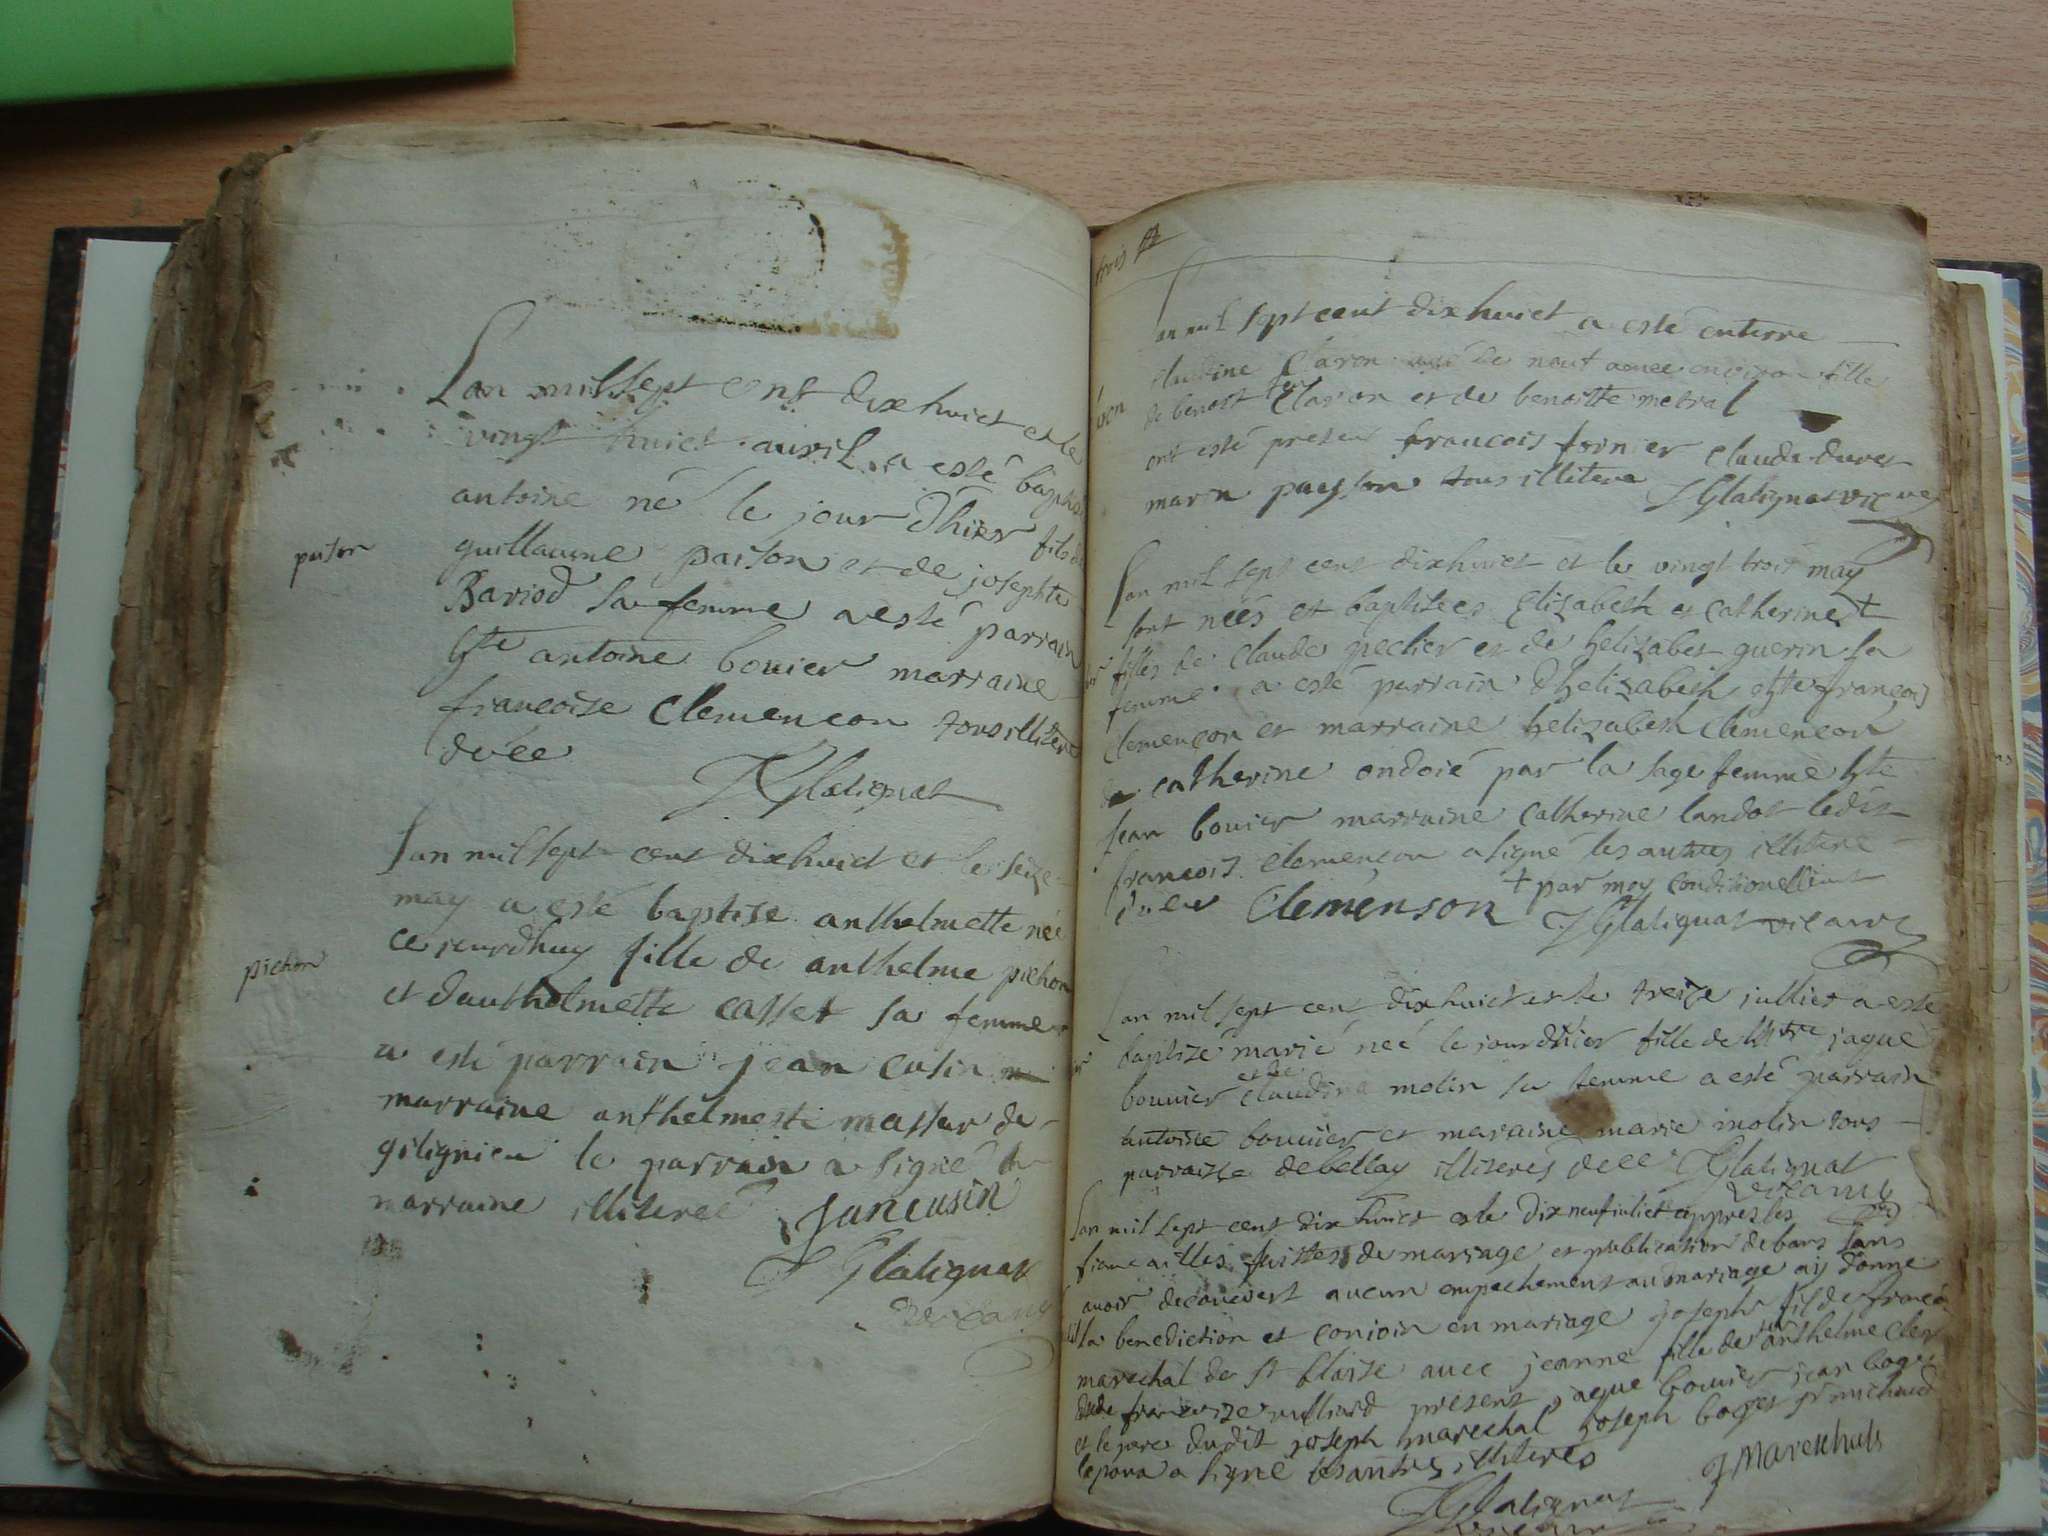 Lan mil sept cent dixhuict et le
vingt huict auril a esté baptisé
antoine né le jour dhier fils de
paison
guillaume paison et de josephte
Bariod sa femme a esté parrain
antoine bouier marraine
francoise Clemencon tous illiteré
Glatignat
Lan mil sept cent dixhuict et le seize
may a esté baptise anthelmette née
ce jourdhuy fille de anthelme pichon
pichon
et danthelmette casset sa femme
a esté parrain jean cusin
marraine anthelmette massar de
gilignieu le parrain a signé la
marraine illiteree Jan cusin
Glatignat
vicaire
trois
an mil sept cent dixhuict a esté enterre
claudine Claron de neuf année environ fille
de benoit Claron et de benoitte metral
ont esté present francois fornier Claude duret
marin payson tous illitere
Glatignat vicaire
Lan mil sept cent dixhuict et le vingt trois may
sont néés et baptisees Elisabeth et catherine +
filles de Claude peclier et de helizabet guerin sa
femme a esté parrain dhelizabeth francois
Clemencon et marraine helizabeth Clemencon
de catherine ondoié par la sage femme
jean bouier marraine catherine landot ledit
francois Clemencon a signé les autres illitere
Clemenson + par moy conditionellement
Glatignat vicaire
Lan mil sept cent dixhuict et le treize julliet a esté
baptizé marie neé le jour dhier fille de jaque
bouuier et de claudina molin sa femme a esté parrain
antoine bouuier et maraine marie molin tous
parroisse de bellay illiterés Glatignat
vicaire
Lan mil sept cent dix huict et le dixneuf juliet appres les
fiancailles de mariage et publication de bans sans
auoir decouuert aucun empechement au mariage ay donne
la benediction et conioin en mariage joseph fils de francois
marechal de st blaise auec jeanne fille de anthelme
francoize present jaque bouuier jean
et le pere dudit joseph marechal joseph michaud
a signé les autres illiteres
J Mareschals
Glatignat